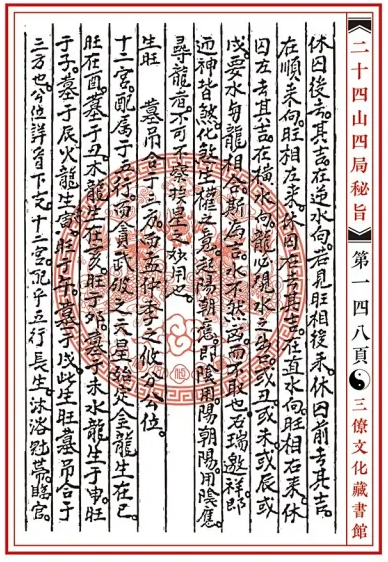 二十四山四局秘旨
第一四八頁
三僚文化藏書館
休囚後去。其吉在逆水向。若見旺相後來。休囚前去其吉。
在順來向。旺相左來。休囚右去其吉。在直水向。旺相右來。休
囚左去其吉。在橫水向。龍必現水之生巳。或丑或未或辰或
戌。要水與龍相合。斯為吉。水不然。凶而不取也。右瑞邀祥。即
迎神皆煞。化煞生權之竟。起陽朝應。即陰用陽朝。陽用陰應。
尋龍者。不可不察。按是之欢用也。
生旺 墓吊金三方。而孟仲季之攸分公位。
十二宮。配属于五行。而貪武破之天星强焚。金龍生在巳
旺在酉。墓于丑。木龍生在亥。旺于卯。墓于未。水龍生于申。旺
于子。墓于辰。火龍生寅。旺于午。墓于戌。此生旺墓吊合于
三方也。公位詳肖下元。十二宮。配乎五行。長生。沐浴。冠帶。臨官。